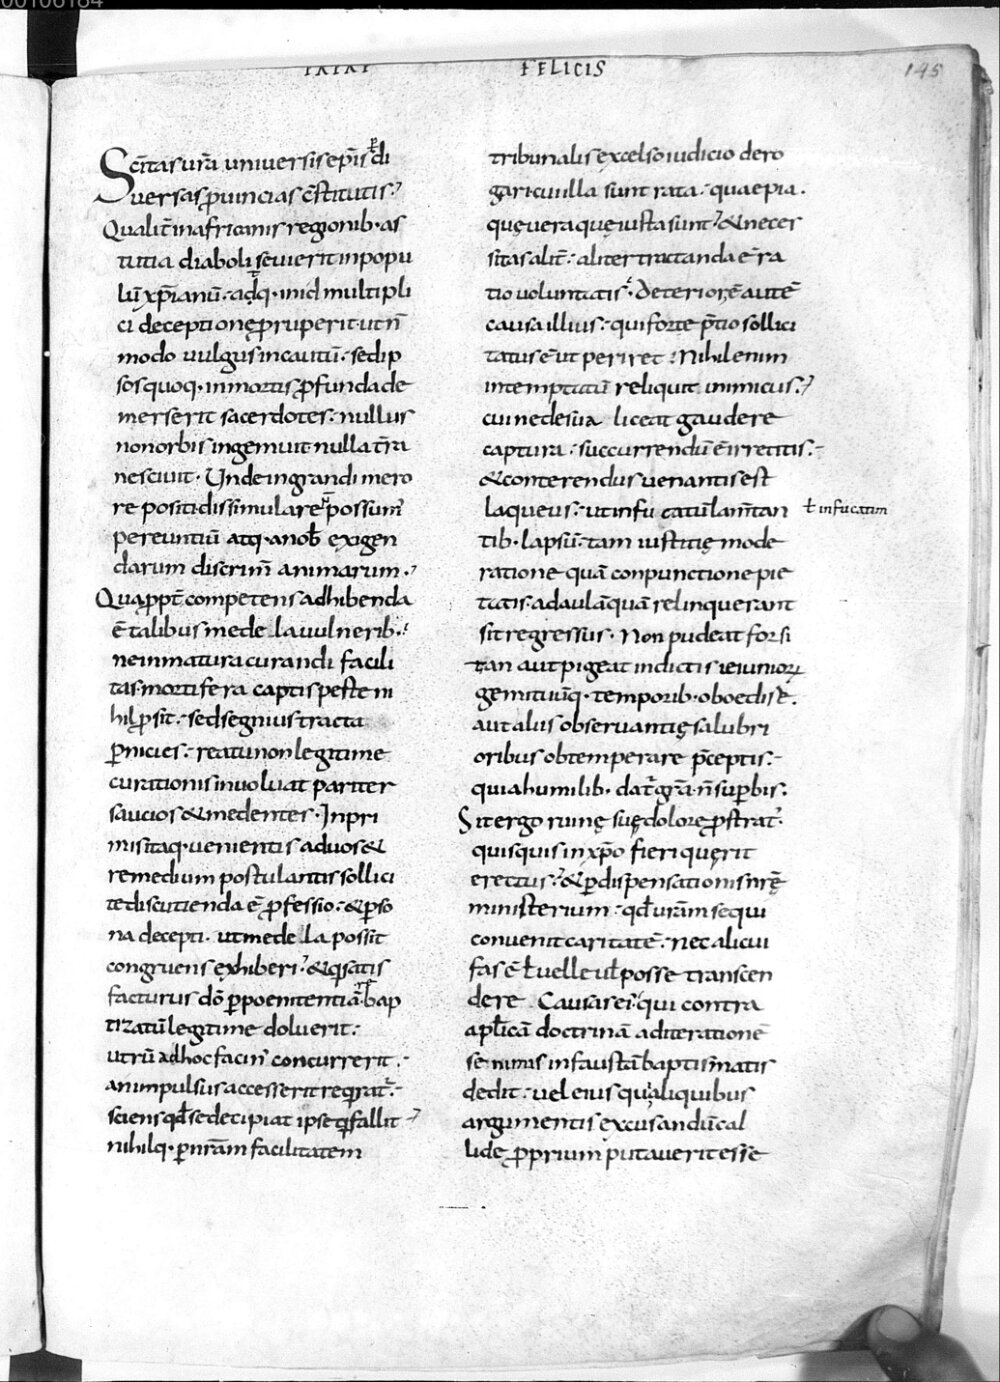 00106184
PAPAE FELICIS 145
Scitas ur̄a uniuersis ep̄is ꝑ di
uersas ꝓuincias c̄stitutis
Qualit̄ in africanis regionib· as
tutia diaboli seuierit in popu
lū xp̄ianū· adq· in id multipli
ci deceptione ꝓruperit ut n̄
modo uulgus incautū· sed ip
sos quoq· in mortis ꝓfunda de
merserit sacerdotes· nullus
non orbis ingemuit nulla t̄ra
nesciuit· Unde in grandi mero
re positi dissimulare n̄ possum'
pereuntiū atq· a nob̄ exigen
darum discrim̄ animarum·
Quaꝓpt̄ competens adhibenda
ē talibus medela uulnerib·
ne inmatura curandi facili
tas· mortifera captis peste ni
hil ꝓsit· sed segnius tracta
ꝑnicies· reatu non legitime
curationis inuoluat pariter
saucios & medentes· In pri
mis itaq· uenientis ad uos &
remedium postulantis sollici
te discutienda ē ꝓfessio· & ꝑso
na decepti· ut medela possit
congruens exhiberi· & q satis
facturus dō ꝑ poenitentiā se bap
tizatū legitime doluerit·
utrū ad hoc facin' concurrerit·
an impulsus accesserit reqrat̄·
sciens qd̄ se decipiat ipse q fallit
nihilq· ꝑ nr̄am facilitatem
tribunalis excelso iudicio dero
gari cui illa sunt rata· quae pia·
quę uera quę iusta sunt· & neces
sitas alit̄· aliter tractanda ē ra
tio uoluntatis· Deterior ē autē
causa illius· qui forte p̄tio sollici
tatus ē ut periret· Nihil enim
intemptatū reliquit inimicus·
cui ne de sua liceat gaudere
captura· succurrendū ē irretitis·
& conterendus uenantis est
laqueus· ut infu catū lam̄tan
ł infucatim
tib· lapsū· tam iustitię mode
ratione quā conpunctione pie
tatis· ad aulā quā relinquerant
sit regressus· Non pudeat forsi
tan aut pigeat indictis ieiunioꝝ
gemituūq· temporib· oboedisē·
aut aliis obseruantię salubri
oribus obtemperare p̄ceptis·
quia humilib· dat̄ gr̄a· n̄ suꝑbis·
Sit ergo ruinę suę dolore ꝓstrat'·
quisquis in xp̄o fieri quęrit
erectus· & ꝑ dispensationis nr̄ę
ministerium· qd̄ ur̄am sequi
conuenit caritatē· nec alicui
fas ē ł uelle uł posse transcen
dere Causas ei' qui contra
apl̄icā doctrinā ad iterationē
semimis infaustā baptismatis
dedit· uel eius qui aliquibus
argumentis excusandū cal
lide ꝓprium putauerit esse